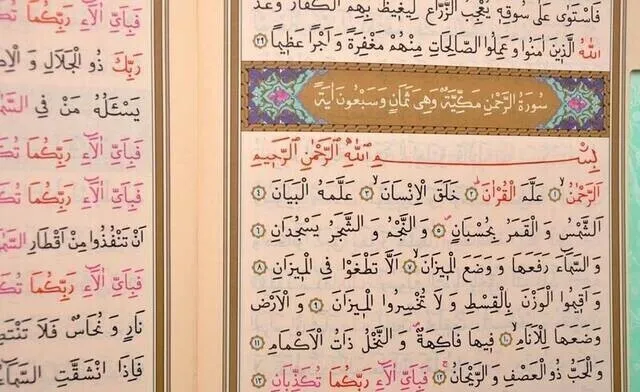 فَاسْتَوٰى عَلٰى سُوقِهٖ يُعْجِبُ الزُّرَّاعَ لِيَغٖيظَ بِهِمُ الْكُفَّارَ وَعَدَ
اللّٰهُ الَّذٖينَ اٰمَنُوا وَعَمِلُوا الصَّالِحَاتِ مِنْهُمْ مَغْفِرَةً وَ اَجْرًا عَظٖيمًا ﴿٢٩﴾
سُورَةُ الرَّحْمٰنِ مَكِّيَّةٌ وَهِيَ ثَمَانٍ وَسَبْعُونَ اٰيَةً
بِسْمِ اللّٰهِ الرَّحْمٰنِ الرَّحٖيمِ
اَلرَّحْمٰنُ ﴿١﴾ عَلَّمَ الْقُرْاٰنَ ﴿٢﴾ خَلَقَ الْاِنْسَانَ ﴿٣﴾ عَلَّمَهُ الْبَيَانَ ﴿٤﴾
اَلشَّمْسُ وَ الْقَمَرُ بِحُسْبَانٍ ﴿٥﴾ وَ النَّجْمُ وَ الشَّجَرُ يَسْجُدَانِ ﴿٦﴾
وَ السَّمَٓاءَ رَفَعَهَا وَ وَضَعَ الْمٖيزَانَ ﴿٧﴾ اَلَّا تَطْغَوْا فِي الْمٖيزَانِ ﴿٨﴾
وَ اَقٖيمُوا الْوَزْنَ بِالْقِسْطِ وَ لَا تُخْسِرُوا الْمٖيزَانَ ﴿٩﴾ وَ الْاَرْضَ
وَضَعَهَا لِلْاَنَامِ ﴿١٠﴾ فٖيهَا فَاكِهَةٌ وَ النَّخْلُ ذَاتُ الْاَكْمَامِ ﴿١١﴾
وَ الْحَبُّ ذُو الْعَصْفِ وَ الرَّيْحَانُ ﴿١٢﴾ فَبِاَيِّ اٰلَٓاءِ رَبِّكُمَا تُكَذِّبَانِ ﴿١٣﴾
فَبِاَيِّ اٰلَٓاءِ رَبِّكُمَا
رَبِّكَ ذُو الْجَلَالِ وَ
يَسْـَٔلُهُ مَنْ فِي
فَبِاَيِّ اٰلَٓاءِ رَبِّكُمَا
فَبِاَيِّ اٰلَٓاءِ رَبِّكُمَا
اَنْ تَنْفُذُوا مِنْ اَقْطَارِ
فَبِاَيِّ اٰلَٓاءِ رَبِّكُمَا
نَارٍ وَ نُحَاسٌ فَلَا
فَاِذَا انْشَقَّتِ